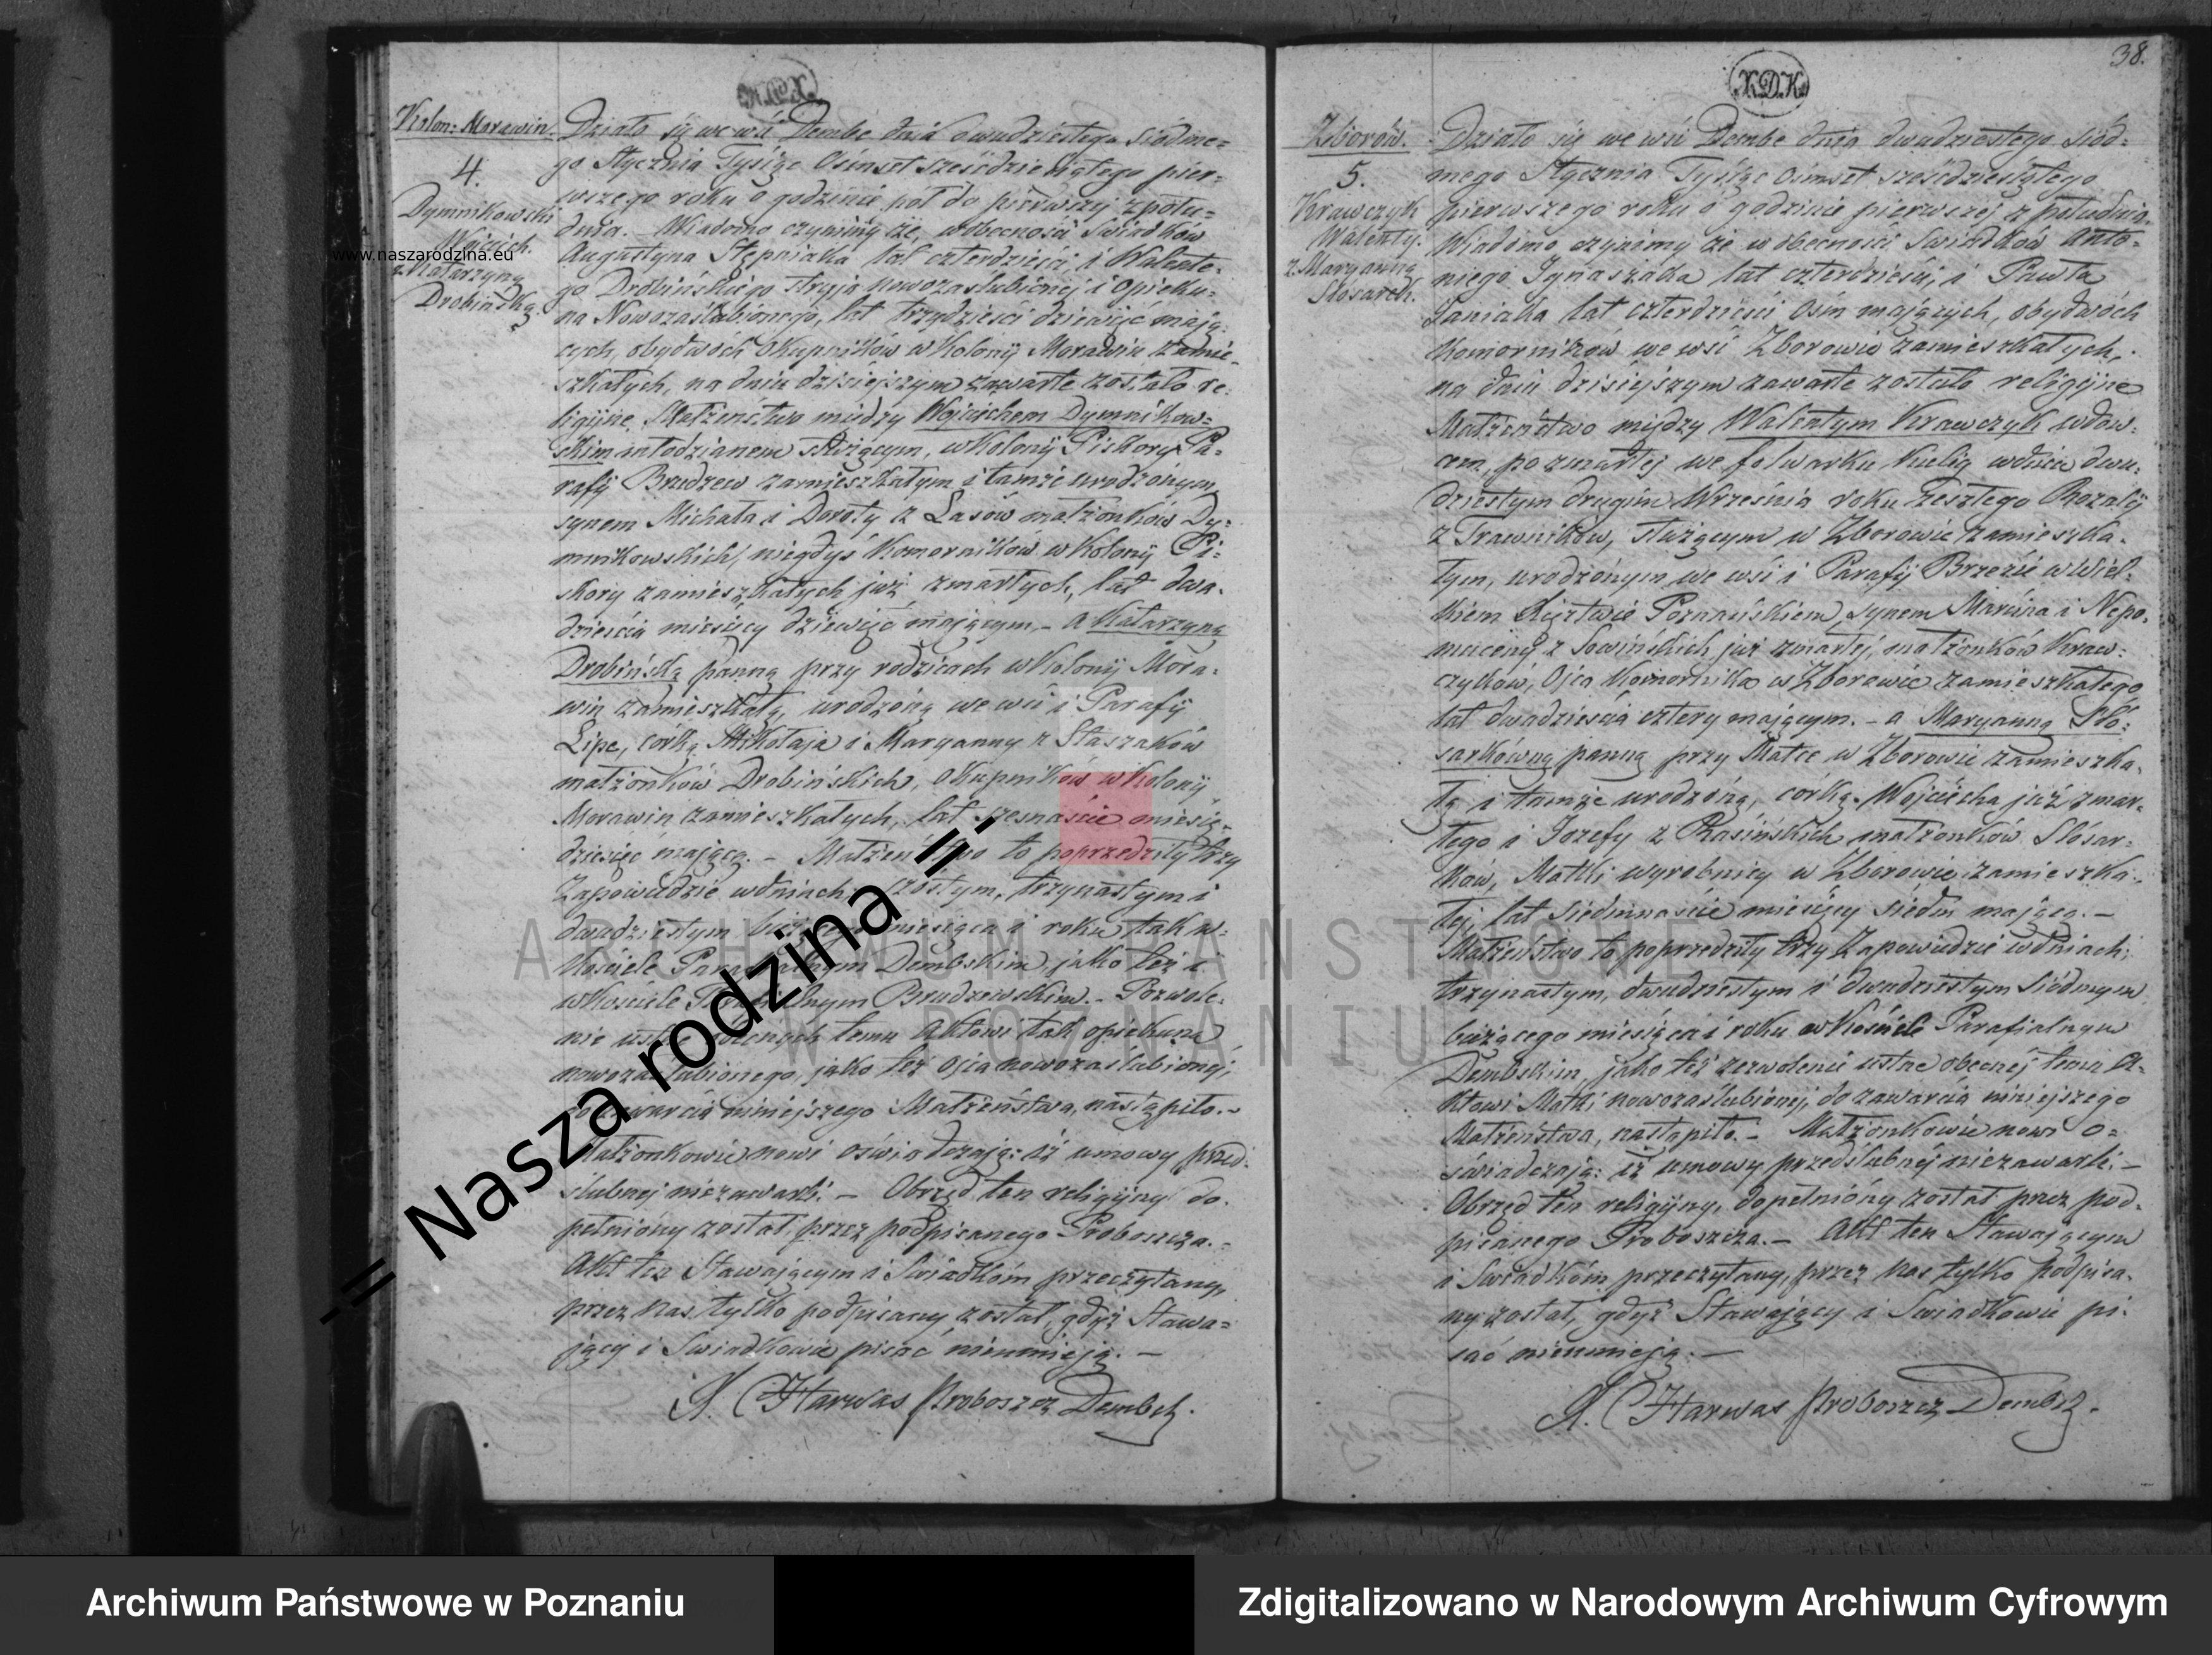 38.
XDK
Kolon: Morawin.
4.
Dymnikowski
Wojciech.
z Katarzyną
Drobińską.
Działo się we wsi Dembe dnia dwudziestego siódme=
go Stycznia Tysiąc Osimset sześćdziesiątego pier=
wszego roku o godzinie pół do pierwszej z połu=
dnia. – Wiadomo czynimy że w obecności Świadków
Augustyna Stępniaka lat czterdzieści, i Walente=
go Drobińskiego stryja nowozaslubionej i opieku=
na Nowozaślubionego, lat trzydzieści dziewięć mają=
cych, obydwóch Okupników w Kolonij Morawin zamie=
szkałych, na dniu dzisiejszym zawarte zostało re=
ligijne Małżeństwo między Wojciechem Dymnikow=
skim młodzianem służącym, w Kolonij Piskory Pa=
rafij Brudzew zamieszkałym i tamże urodzonym,
synem Michała i Doroty z Lasów małżonków Dy=
mnikowskich, niegdyś Komorników w Kolonij Pi=
skory zamieszkałych już zmarłych, lat dwa=
dzieścia miesięcy dziewięć mającym, – a Katarzyną
Drobińską panną przy rodzicach w Kolonij Mora=
win zamieszkałą, urodzoną we wsi i Parafij
Lipe, córką Mikołaja i Maryanny z Staszaków
małżonków Drobińskich, Okupników w Kolonij
Morawin zamieszkałych, lat szesnaście miesię=
dziesięć mającą. – Małżeństwo to poprzedziły trzy
Zapowiedzie w dniach: szóstym, trzynastym i
dwudziestym miesiąca i roku tak w=
Kościele Parafialnym Dembskim, jako też i
w Kościele Parafialnym Brudzewskim. – Pozwole=
nie ustne obecnych temu Aktowi tak opiekuna
nowozaślubionego, jako też Ojca nowozaślubionej,
do zawarcia niniejszego Małżeństwa, nastąpiło. –
Małżonkowie nowi oświadczają: iż umowy przed=
ślubnej niezawarli. – Obrzęd ten religijny do=
pełniony został przez podpisanego Proboszcza. –
Akt ten Stawającym i Świadkom przeczytany,
przez Nas tylko podpisany został, gdyż Stawa=
jący i Świadkowie pisać nieumieją. –
X. Harwas Proboszcz Dembsk.
XDK
Zborów.
5.
Krawczyk
Walenty.
z Maryanną
Slósarek.
Działo się we wsi Dembe dnia dwudziestego siód=
mego Stycznia Tysiąc Osimset sześćdziesiątego
pierwszego roku o godzinie pierwszej z południa.
Wiadomo czynimy że w obecności Świadków Anto=
niego Ignaszaka lat czterdzieści, i Pawła
Janiaka lat czterdzieści osim mających, obydwóch
Komorników we wsi Zborowie zamieszkałych,
na dniu dzisiejszym zawarte zostało religijne
Małżeństwo między Walentym Krawczyk wdow=
cem, po zmarłej we folwarku Kuelig w dniu dwu=
dziestym drugim Września roku zeszłego Rozalij
z Trawników, służącym w Zborowie zamieszka=
łym, urodzonym we wsi i Parafij Brzezie w Wiel=
kiem Księstwie Poznańskiem, synem Marcina i Nepo=
muceny z Sowińskich już zmarłej, małżonków Kraw=
czyków, Ojca Komornika w Zborowie zamieszkałego
lat dwadzieścia cztery mającym. – a Maryanną Sló=
sarkówną panną przy Matce w Zborowie zamieszka=
łą i tamże urodzoną, córką Wojciecha już zmar=
łego i Józefy z Rasińskich małżonków Slósar=
ków, Matki wyrobnicy w Zborowie zamieszka=
łej, lat siedmnaście miesięcy siedm mającą. –
Małżeństwo to poprzedziły trzy Zapowiedzie w dniach:
trzynastym, dwudziestym i dwudziestym siódmym
bieżącego miesiąca i roku w Kościele Parafialnym
Dembskim, jako też zezwolenie ustne obecnej temu A=
ktowi Matki nowozaślubionej, do zawarcia niniejszego
Małżeństwa, nastąpiło. – Małżonkowie nowi o=
świadczają: iż umowy przedślubnej niezawarli. –
Obrzęd ten religijny, dopełniony został przez pod=
pisanego Proboszcza. – Akt ten Stawającym
i Świadkom przeczytany, przez Nas tylko podpisa=
ny został, gdyż Stawający i Świadkowie pi=
sać nieumieją. –
X. Harwas Proboszcz Dembsk.
www.naszarodzina.eu
-= Nasza rodzina =-
ARCHIWUM PAŃSTWOWE
W POZNANIU
Archiwum Państwowe w Poznaniu
Zdigitalizowano w Narodowym Archiwum Cyfrowym